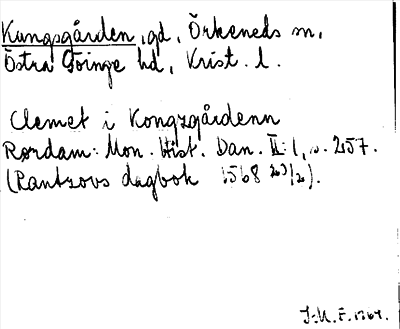 Kungsgården, gd, Örkeneds sn,
Östra Göinge hd, Krist. l.
Clemet i Kongzgårdenn
Rørdam: Mon. Hist. Dan. II:1, s. 257.
(Rantzovs dagbok 1568 20/12).
J.M.F. 1964.